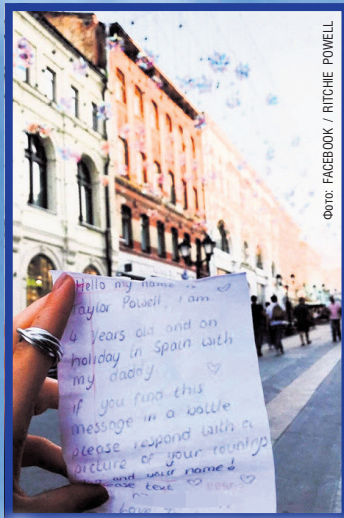 Фото: FACEBOOK / RITCHIE POWELL
Hello my name is
Taylor Powell, I am
4 years old and on
holiday in Spain with
my daddy
if you find this
message in a bottle
please respond with a
picture of your country
and your name!
please text